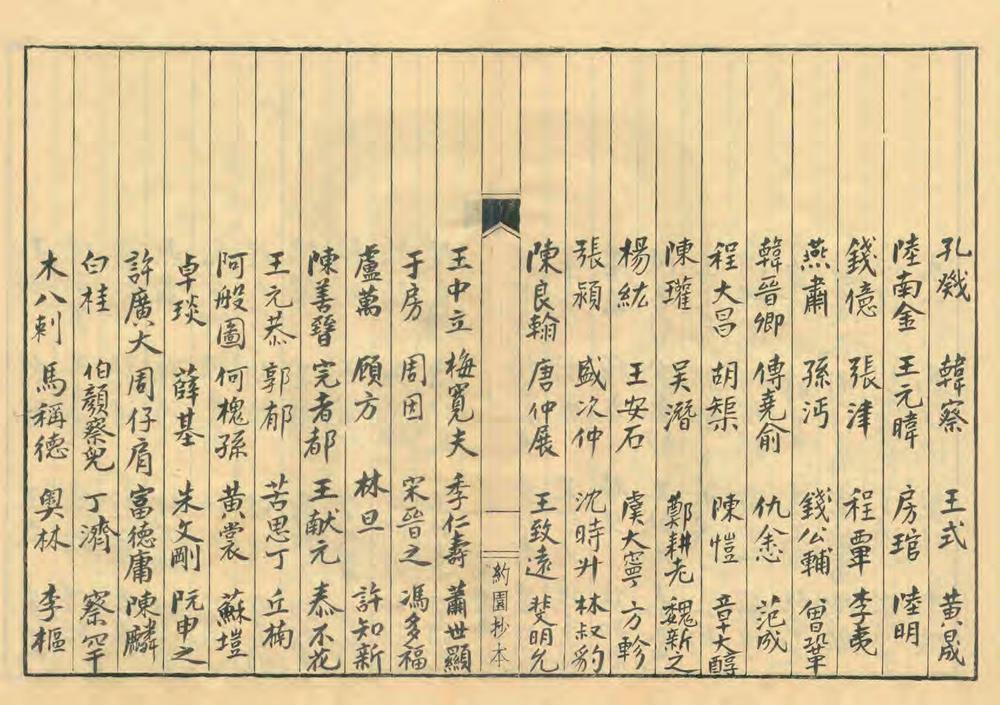 孔戣 韓察 王式 黃晟
陸南金 王元暐 房琯 陸明
錢億 張津 程覃 李夷
燕肅 孫沔 錢公輔 曾鞏
韓晉卿 傅堯俞 仇悆 范成
程大昌 胡榘 陳愷 章大醇
陳瓘 吴潛 鄭耕老 魏新之
楊紘 王安石 虞大寧 方軫
張潁 盛次仲 沈時升 林叔豹
陳良翰 唐仲展 王致遠 婓明允
約園抄本
王中立 梅寬夫 季仁壽 蕭世顯
于房 周因 宋晉之 馮多福
盧萬 顧方 林旦 許知新
陳善 完者都 王献元 泰不花
王元恭 郭郁 苦思丁 丘楠
阿般圖 何槐孫 黄裳 蘇塏
卓琰 薛基 朱文剛 阮申之
許廣大 周仔肩 富德庸 陳麟
白桂 伯顏察兒 丁濟 察罕
木八剌 馬稱德 奥林 李樞